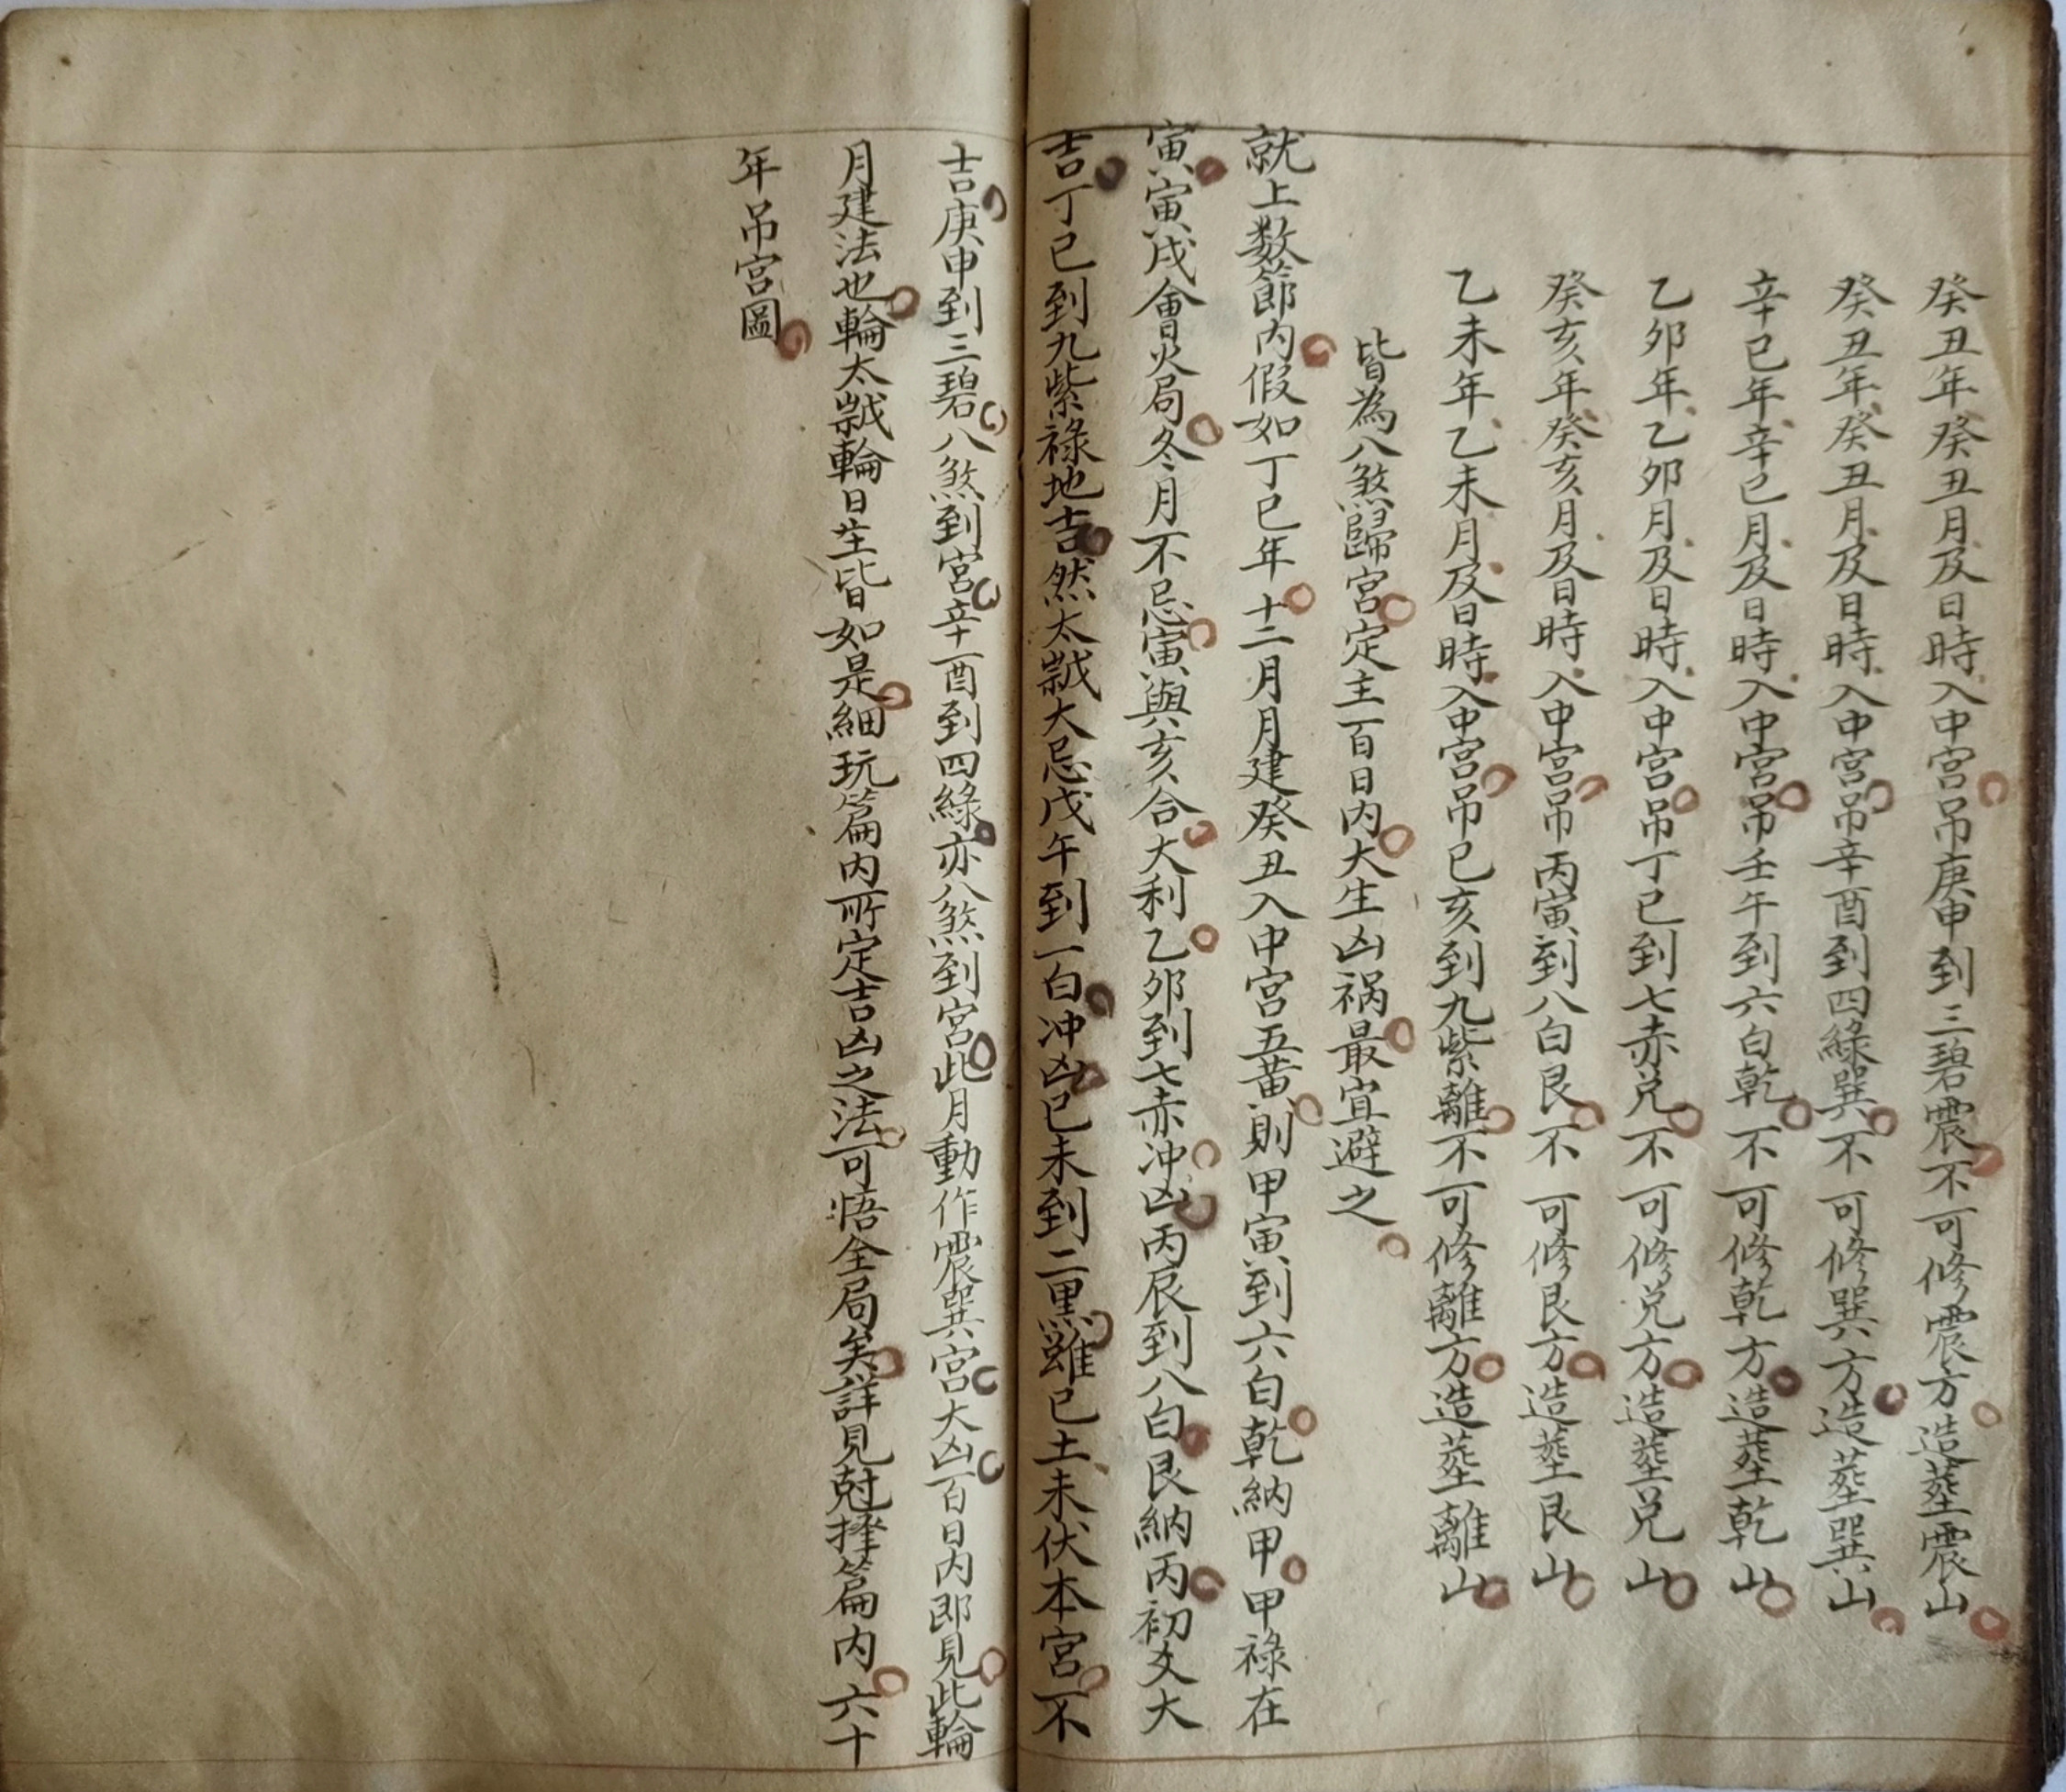 癸丑年癸丑月及日時入中宮吊庚申到三碧震不可修震方造塟震山
癸丑年癸丑月及日時入中宮吊辛酉到四綠巽不可修巽方造塟巽山
辛巳年辛巳月及日時入中宮吊壬午到六白乾不可修乾方造塟乾山
乙卯年乙卯月及日時入中宮吊丁巳到七赤兑不可修兑方造塟兑山
癸亥年癸亥月及日時入中宮吊丙寅到八白艮不可修艮方造塟艮山
乙未年乙未月及日時入中宮吊己亥到九紫離不可修離方造塟離山
皆為八煞歸宮定主百日內大生凶祸最宜避之
就上数節內假如丁巳年十二月月建癸丑入中宮五黄則甲寅到六白乾納甲甲祿在
寅寅戌會火局冬月不忌寅與亥合大利乙卯到七赤冲凶丙辰到八白艮納丙初爻大
吉丁巳到九紫祿地吉然太歲大忌戊午到一白冲凶己未到二黑雖己土未伏本宮不
吉庚申到三碧八煞到宮辛酉到四綠亦八煞到宮此月動作震巽宮大凶百日內即見此輪
月建法也輪太歲輪日𦮼皆如是細玩篇內所定吉凶之法可悟全局矣詳見尅擇篇內六十
年吊宮圖